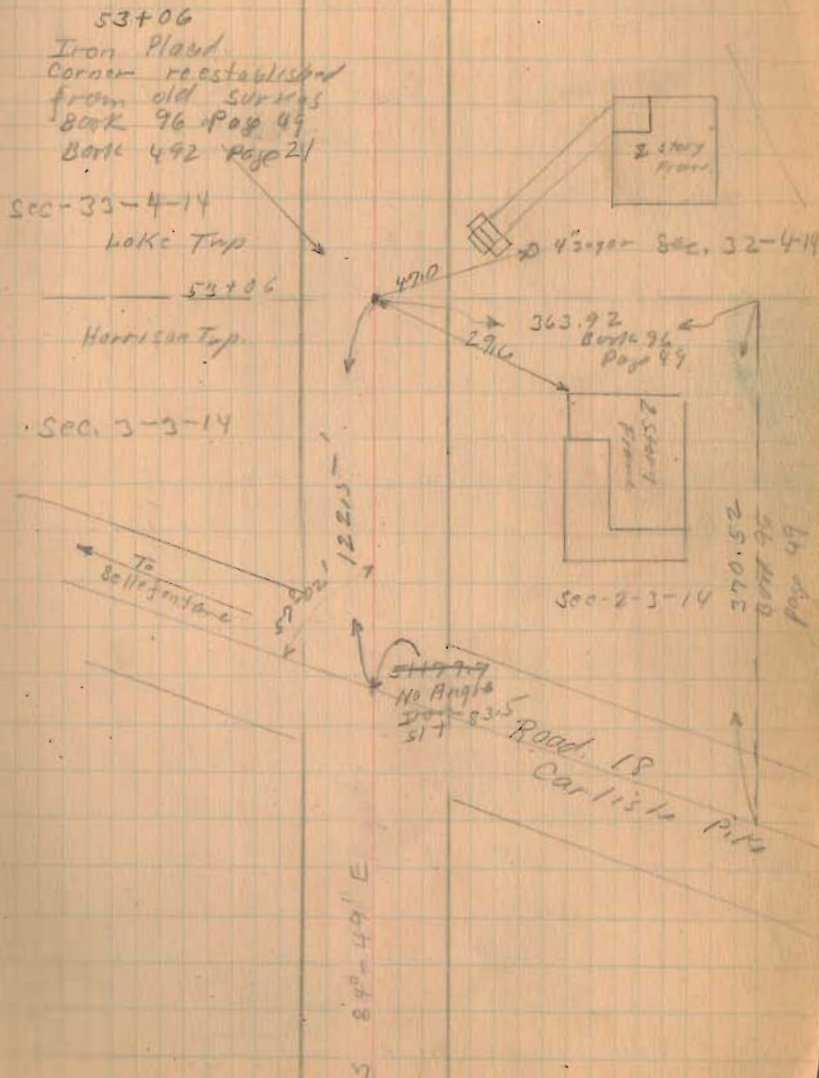 53+06
Iron Placed
Corner reestablished
from old surveys
Book 96 Page 49
Book 492 Page 21
Sec-33-4-14
Lake Twp
53+06
Harrison Twp.
Sec. 3-3-14
2 story
Frame
4" sugar
Sec. 32-4-14
47.0
363.92
Book 96
Page 49
29.6
2 Story
Frame
Sec-2-3-14
370.52
Book 96
Page 49
122.5'
To
Bellefontane
57°-02'
No Angle
51+83.5
Road 18
Carlisle Pike
S 84°-49' E